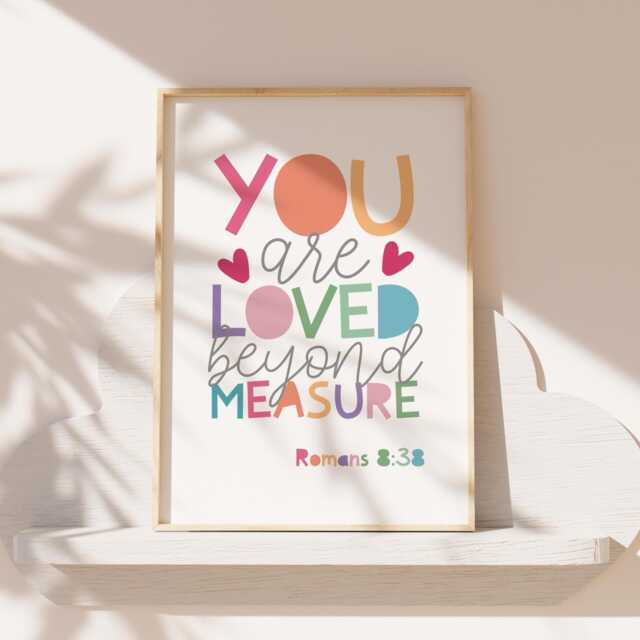 YOU
are
LOVED
beyond
MEASURE
Romans 8:38